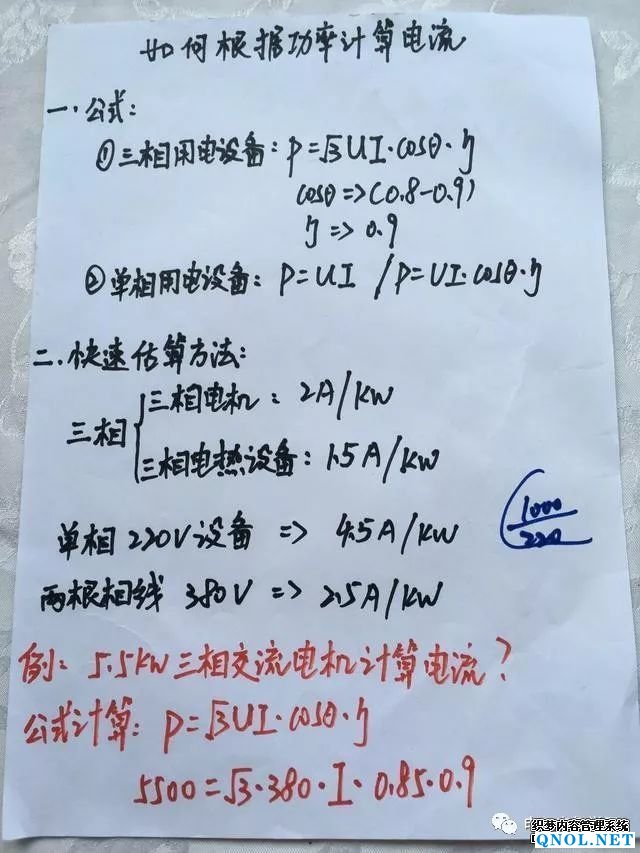 如何根据功率计算电流
一.公式:
①三相用电设备: P=√3UI·cosθ·η
cosθ=>(0.8-0.9)
η=>0.9
②单相用电设备: P=UI /P=UI·cosθ·η
二.快速估算方法:
三相 { 三相电机: 2A/KW
三相电热设备: 1.5A/KW
单相220V设备 => 4.5A/KW (1000/220
两根相线 380V => 2.5A/KW
例: 5.5KW三相交流电机计算电流?
公式计算: P=√3UI·cosθ·η
5500=√3·380·I·0.85·0.9
织梦内容管理系统
QNOL.NET